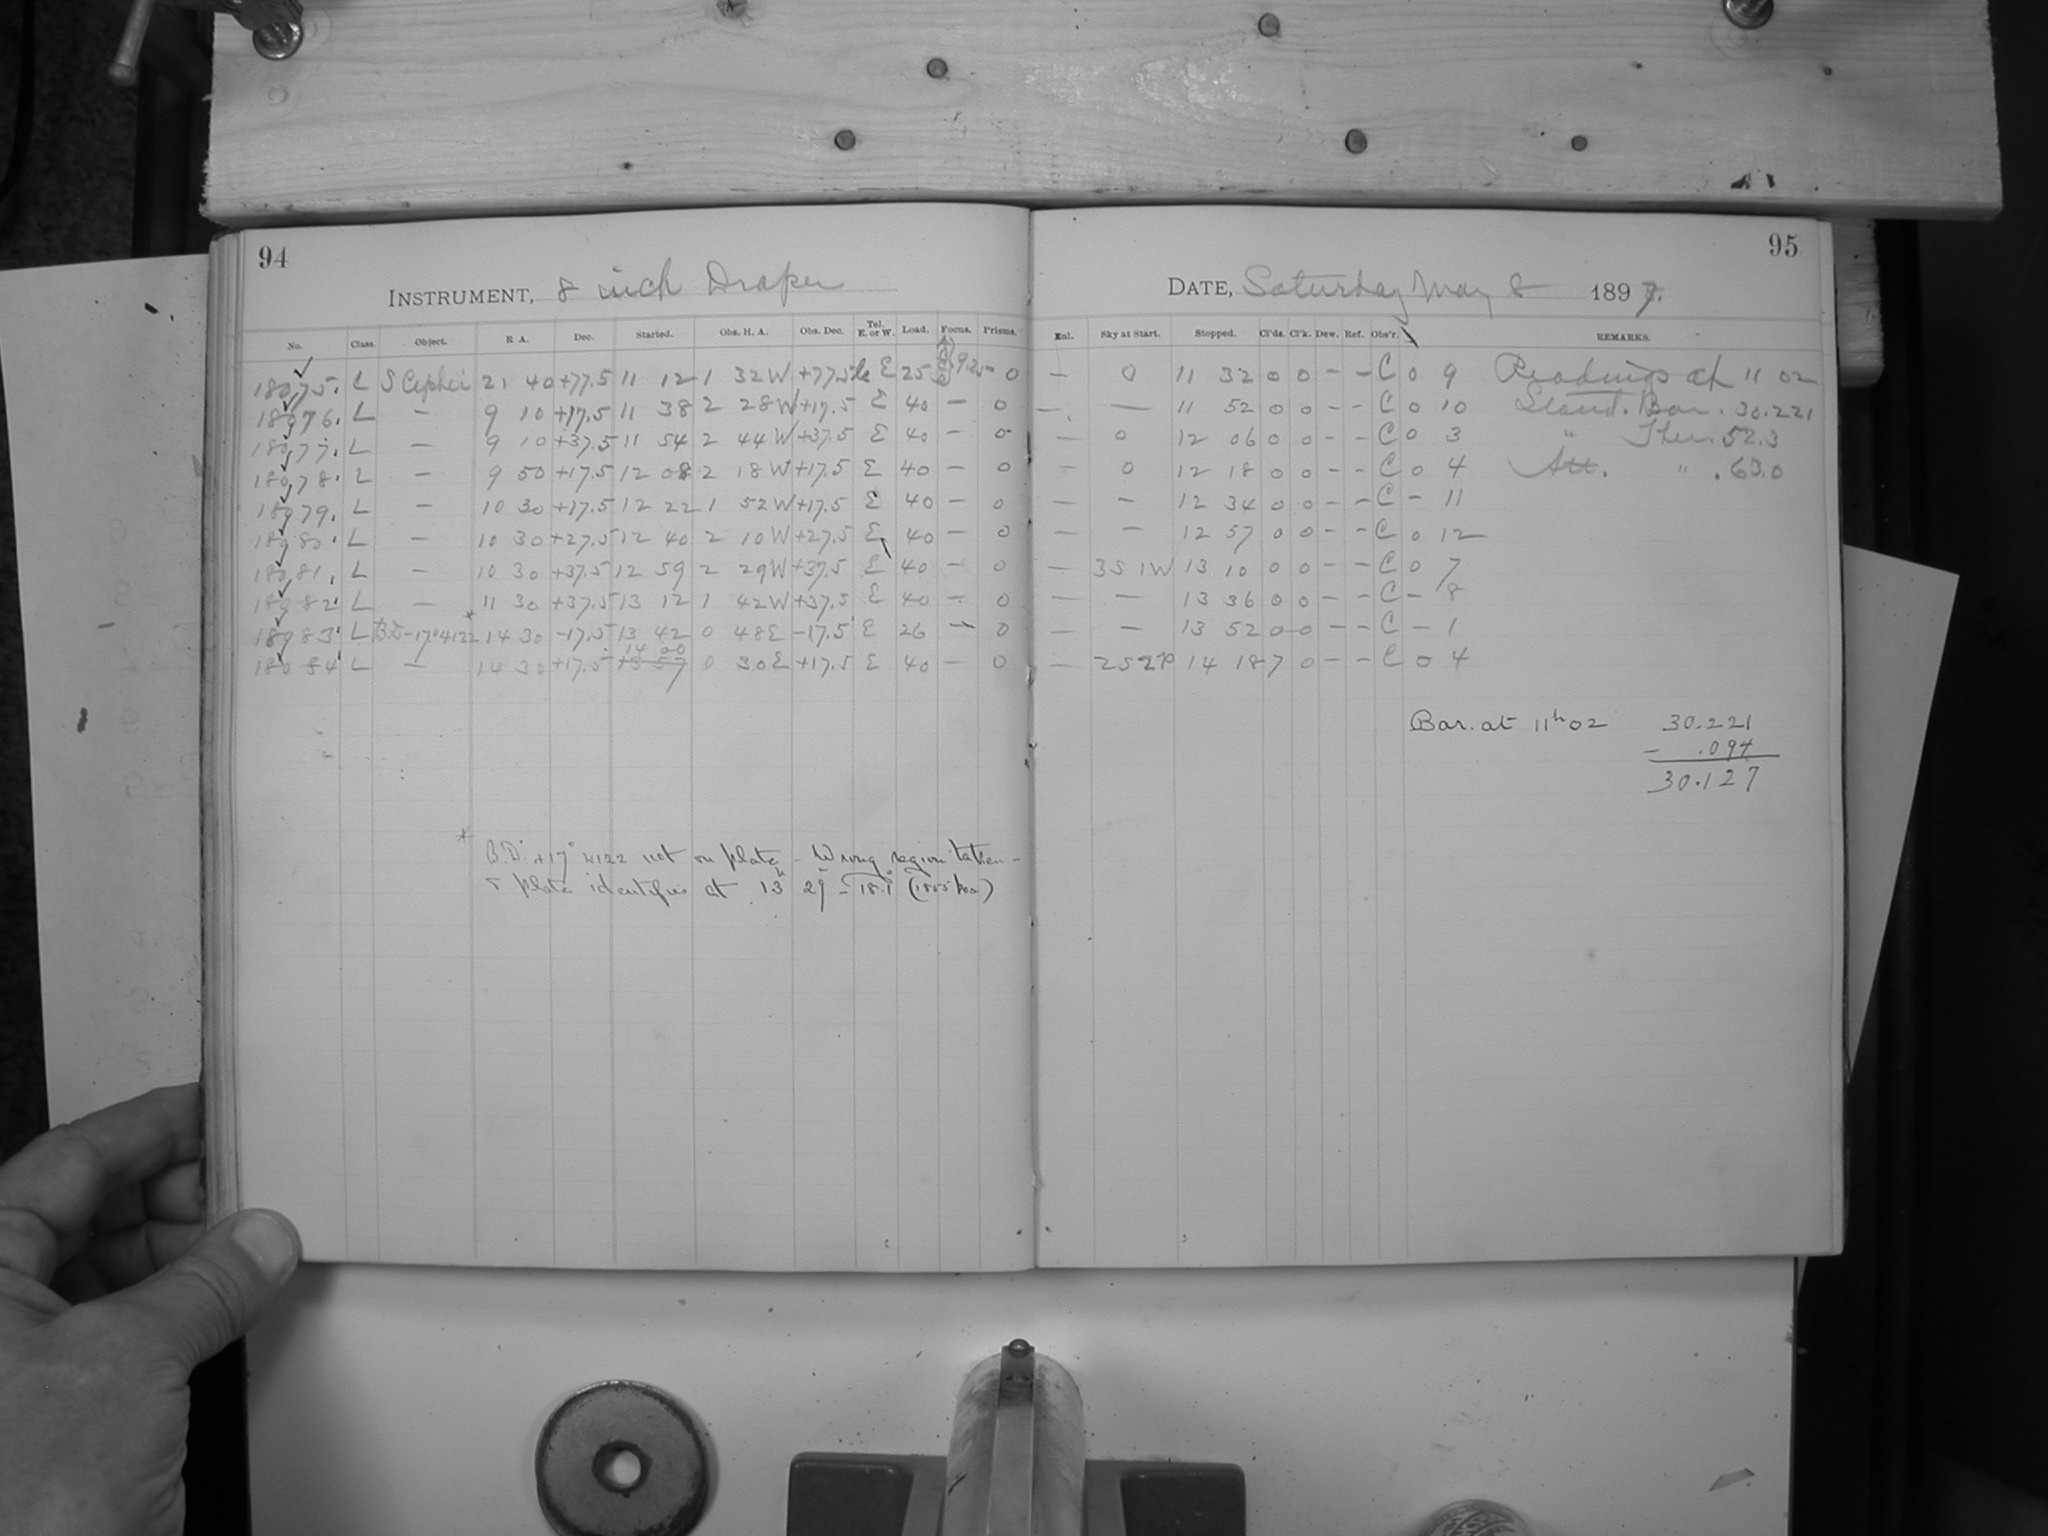 94
INSTRUMENT, 8 inch Draper
No. Class. Object. R A. Dec. Started. Obs. H. A. Obs. Dec. Tel. E. or W. Load. Focus. Prisms.
18075. L S Cephei 21 40 +77.5 11 12 1 32W +77.5 E 25 9.2 0
18076. L — 9 10 +17.5 11 38 2 28W +17.5 E 40 — 0
18077. L — 9 10 +37.5 11 54 2 44W +37.5 E 40 — 0
18078. L — 9 50 +17.5 12 08 2 18W +17.5 E 40 — 0
18079. L — 10 30 +17.5 12 22 1 52W +17.5 E 40 — 0
18080. L — 10 30 +27.5 12 40 2 10W +27.5 E 40 — 0
18081. L — 10 30 +37.5 12 59 2 29W +37.5 E 40 — 0
18082. L — 11 30 +37.5 13 12 1 42W +37.5 E 40 — 0
18083. L B.D.-17°4122 * 14 30 -17.5 13 42 0 48E -17.5 E 26 — 0
14 00
18084. L — 14 30 +17.5 13 57 0 30E +17.5 E 40 — 0
* B.D. +17° 4122 not on plate - Wrong region taken -
plate identified at 13h 29 - 18.1° (1855 pos)
95
DATE, Saturday May 8 1897.
Enl. Sky at Start. Stopped. Cl'ds. Cl'k. Dew. Ref. Obs'r. REMARKS.
— 0 11 32 0 0 - - C 0 9 Readings at 11 02
— — 11 52 0 0 - - C 0 10 Stand. Bar. 30.221
— 0 12 06 0 0 - - C 0 3 " Ther. 52.3
— 0 12 18 0 0 - - C 0 4 Att. " .63.0
— — 12 34 0 0 - - C - 11
— — 12 57 0 0 - - C 0 12
— 3S 1W 13 10 0 0 - - C 0 7
— — 13 36 0 0 - - C - 8
— — 13 52 0 0 - - C - 1
— 2S 14 18 7 0 - - C 0 4
Bar. at 11h 02 30.221
- .094
30.127